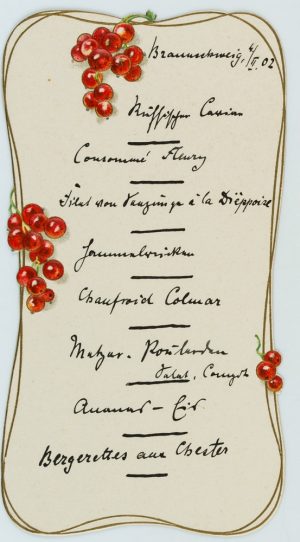 Braunschweig, 4/II. 02
Russischer Caviar
Consommé Fleury
Filet von Seezunge à la Diëppoise
Hammelrücken
Chaufroid Colmar
Metzer-Poularden
Salat, Compott
Ananas-Eis
Bergerettes aux Chester